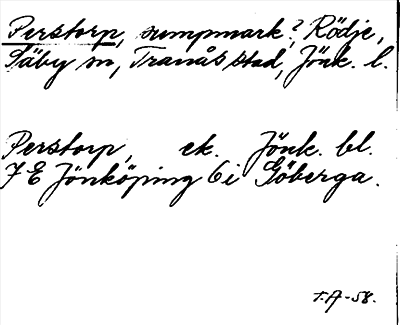 Perstorp, sumpmark?, Rödje,
Säby sn, Tranås stad, Jönk. l.
Perstorp, ek. Jönk. bl.
7 E Jönköping 6 i Göberga.
T.A-58.